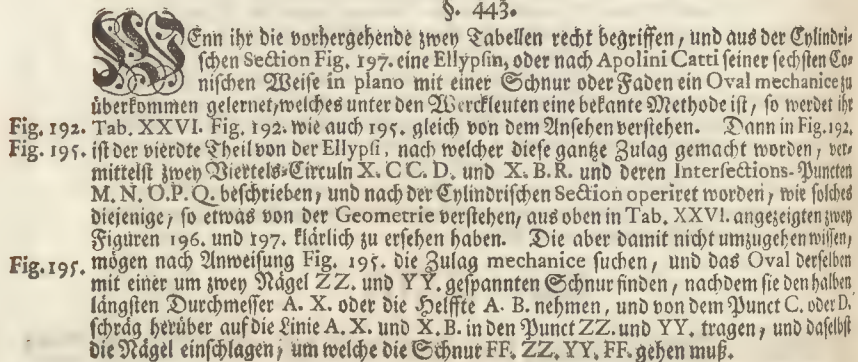 §. 443.
WEnn ihr die vorhergehende zwey Tabellen recht begriffen, und aus der Cylindri-
schen Section Fig. 197. eine Ellypsin, oder nach Apolini Catti seiner sechsten Co-
nischen Weise in plano mit einer Schnur oder Faden ein Oval mechanice zu
überkommen gelernet, welches unter den Werckleuten eine bekante Methode ist, so werdet ihr
Fig. 192. Tab. XXVI. Fig. 192. wie auch 195. gleich von dem Ansehen verstehen. Dann in Fig. 192.
Fig. 195. ist der vierdte Theil von der Ellypsi, nach welcher diese gantze Zulag gemacht worden, ver-
mittelst zwey Viertels-Circuln X. C C. D. und X. B. R. und deren Intersections-Puncten
M. N. O. P. Q. beschrieben, und nach der Cylindrischen Section operiret worden, wie solches
diejenige, so etwas von der Geometrie verstehen, aus oben in Tab. XXVI. angezeigten zwey
Figuren 196. und 197. klärlich zu ersehen haben. Die aber damit nicht umzugehen wissen,
Fig. 195. mögen nach Anweisung Fig. 195. die Zulag mechanice suchen, und das Oval derselben
mit einer um zwey Nägel Z Z. und Y Y. gespannten Schnur finden, nachdem sie den halben
längsten Durchmesser A. X. oder die Helffte A. B. nehmen, und von dem Punct C. oder D.
schräg herüber auf die Linie A. X. und X. B. in den Punct Z Z. und Y Y. tragen, und daselbst
die Nägel einschlagen, um welche die Schnur F F. Z Z. Y Y. F F. gehen muß.